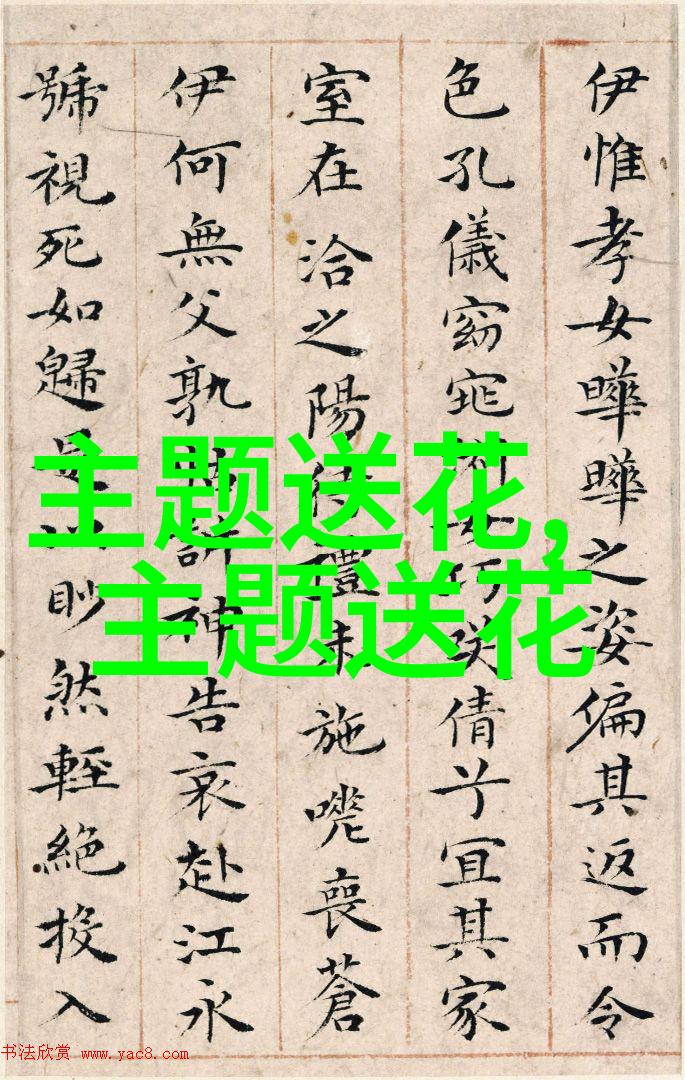 伊惟孝女曄曄之姿偏其返而令
色孔儀窈窕淑女巧笑倩兮宜其家
室在洽之陽待禮未施嗟喪蒼
伊何無父孰怙訴神告哀赴江永
號視死如歸是以眇然輕絕投入
主题送花,
主题送花
书法欣赏 www.yac8.com